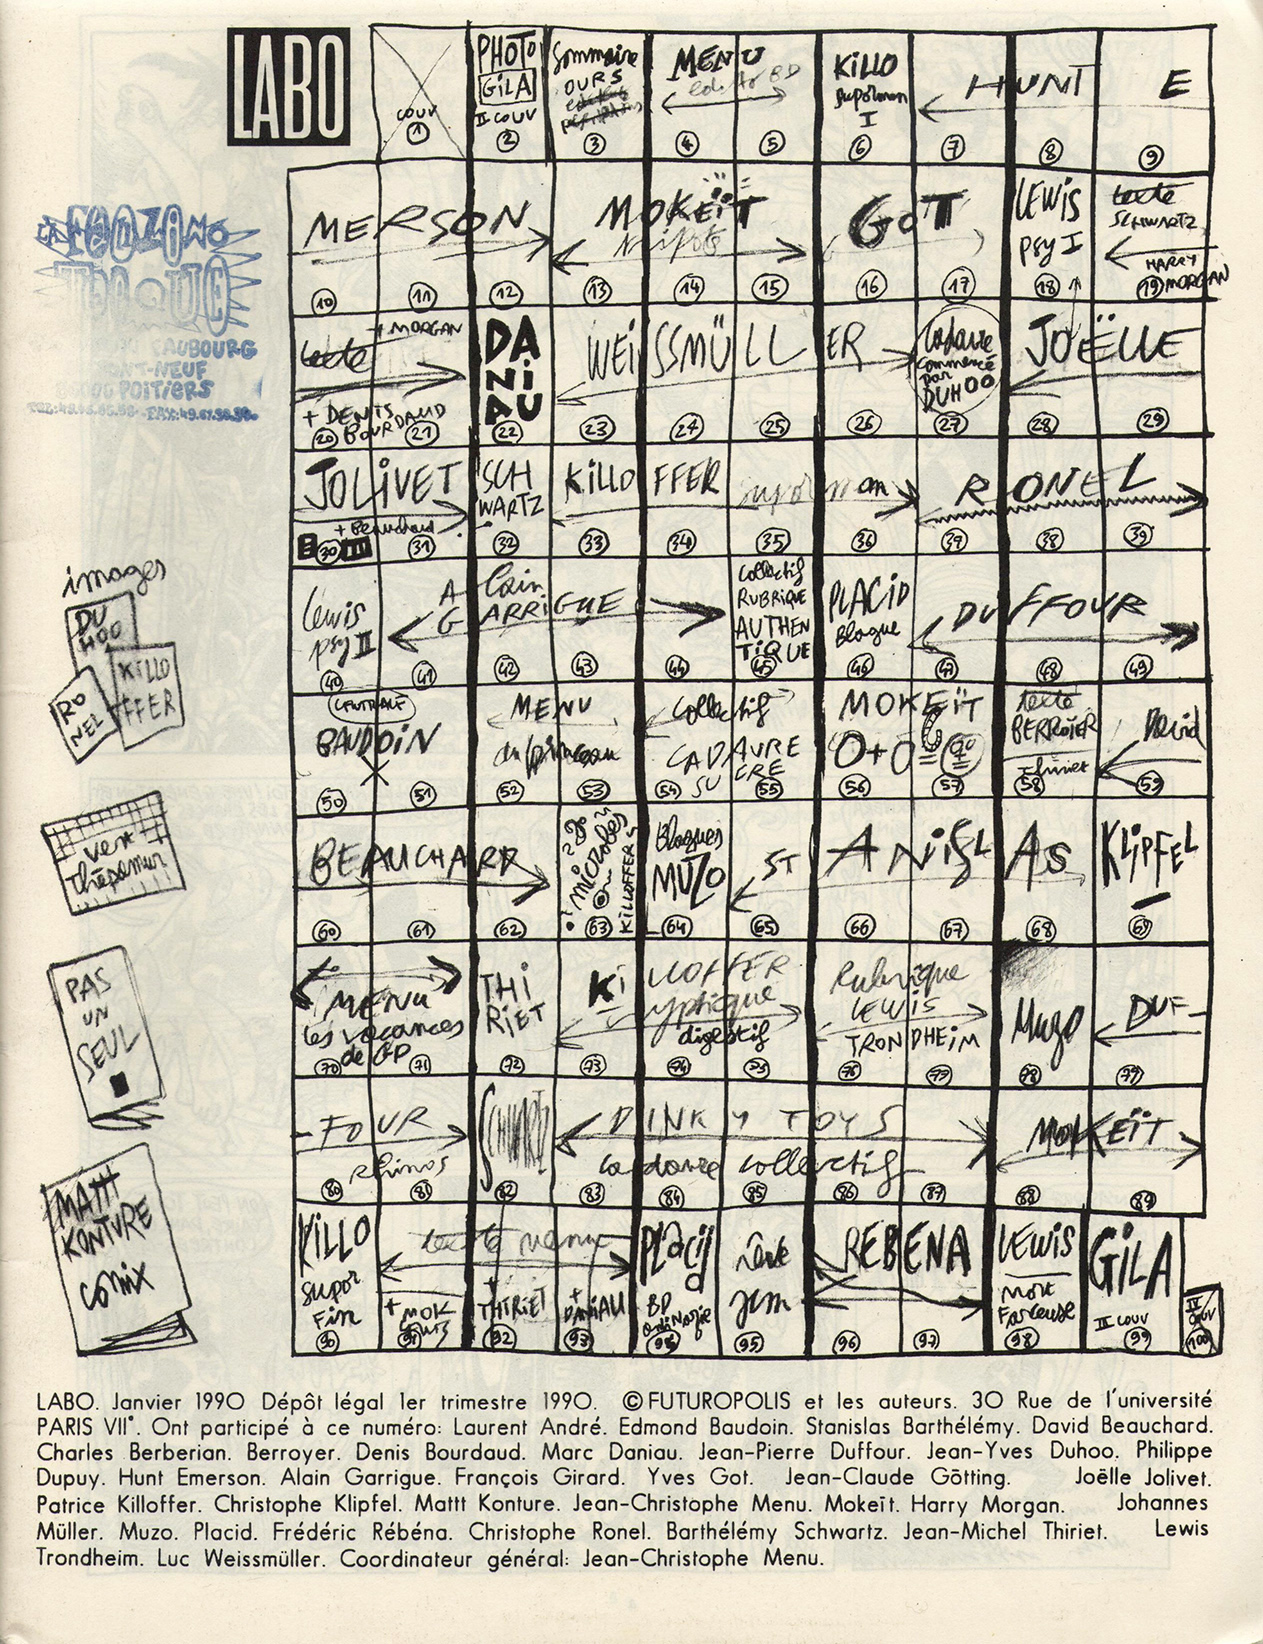 LABO
COUV
1
PHOTO
GILA
II COUV
2
Sommaire
OURS
3
MENU
edito BD
4
5
KILLO
supotman
I
6
HUNT E
7
8
9
MERSON
10
11
12
MOKEÏT
13
14
15
GOT
16
17
LEWIS
psy I
18
texte
SCHWARTZ
HARRY
MORGAN
19
LA FANZINO
THEQUE
FAUBOURG
PONT-NEUF
86000 POITIERS
texte
+ MORGAN
+ DENIS
BOURDAUD
20
21
DA
NI
AU
22
WEISSMÜLLER
23
24
25
26
Cadavre
commencé
par
DUHOO
27
JOËLLE
28
29
JOLIVET
+ Beauchard
30
31
SCH
WARTZ
32
KILLOFFER
33
34
35
36
RONEL
37
38
39
images
DU
HOO
KILLO
FFER
RO
NEL
Lewis
psy II
40
Alain
GARRIGUE
41
42
43
44
Collectif
RUBRIQUE
AUTHEN
TIQUE
45
PLACID
Blague
46
DUFFOUR
47
48
49
CENTRALE
BAUDOIN
50
51
MENU
52
53
Collectif
CADAVRE
54
55
MOKEÏT
0+0=
56
57
texte
BERROYER
58
David
59
BEAUCHARD
60
61
62
microbes
KILLOFFER
63
Blagues
MUZO
64
ST ANISLAS
65
66
67
68
KLIPFEL
69
vers
Thépamur
PAS
UN
SEUL
MENU
les vacances
de
70
71
THI
RIET
72
KILLOFFER
yptique
digestif
73
74
75
Rubrique
LEWIS
TRONDHEIM
76
77
Muzo
78
DUF-
79
-FOUR
rhinos
80
81
SCHWARTZ
82
DINKY TOYS
cadavre collectif
83
84
85
86
87
MOKEÏT
88
89
MATT
KONTURE
COMIX
KILLO
supor
Fin
90
texte menu
+ MOK
91
+
THIRIET
92
+
DANIAU
93
Placid
BD
94
rêve
jcm
95
REBENA
96
97
LEWIS
Mort
Farceuse
98
GILA
III COUV
99
IV
COUV
100
LABO. Janvier 1990 Dépôt légal 1er trimestre 1990. © FUTUROPOLIS et les auteurs. 30 Rue de l'université
PARIS VII°. Ont participé à ce numéro: Laurent André. Edmond Baudoin. Stanislas Barthélémy. David Beauchard.
Charles Berberian. Berroyer. Denis Bourdaud. Marc Daniau. Jean-Pierre Duffour. Jean-Yves Duhoo. Philippe
Dupuy. Hunt Emerson. Alain Garrigue. François Girard. Yves Got. Jean-Claude Götting. Joëlle Jolivet.
Patrice Killoffer. Christophe Klipfel. Mattt Konture. Jean-Christophe Menu. Mokeït. Harry Morgan. Johannes
Müller. Muzo. Placid. Frédéric Rébéna. Christophe Ronel. Barthélémy Schwartz. Jean-Michel Thiriet. Lewis
Trondheim. Luc Weissmüller. Coordinateur général: Jean-Christophe Menu.